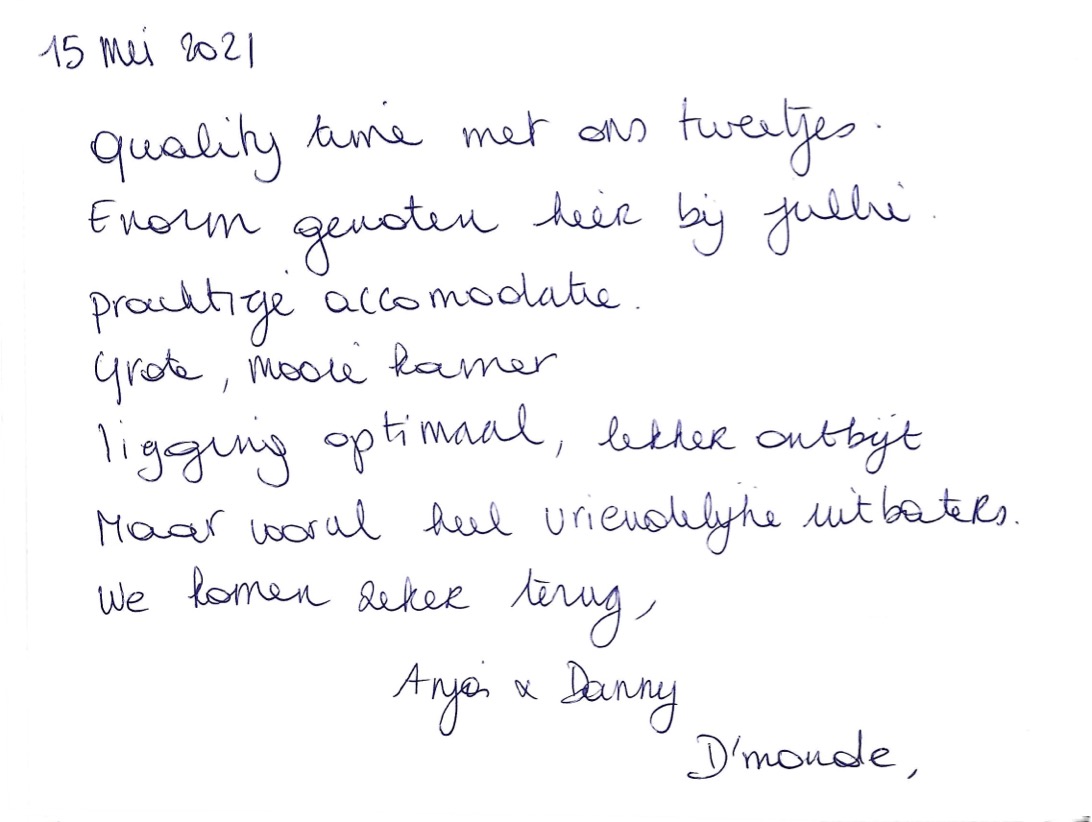 15 mei 2021
quality time met ons tweetjes.
Enorm genoten hier bij jullie.
prachtige accomodatie.
Grote, mooie kamer
ligging optimaal, lekker ontbijt
Maar vooral heel vriendelijke uitbaters.
We komen zeker terug,
Anja & Danny
D'monde,